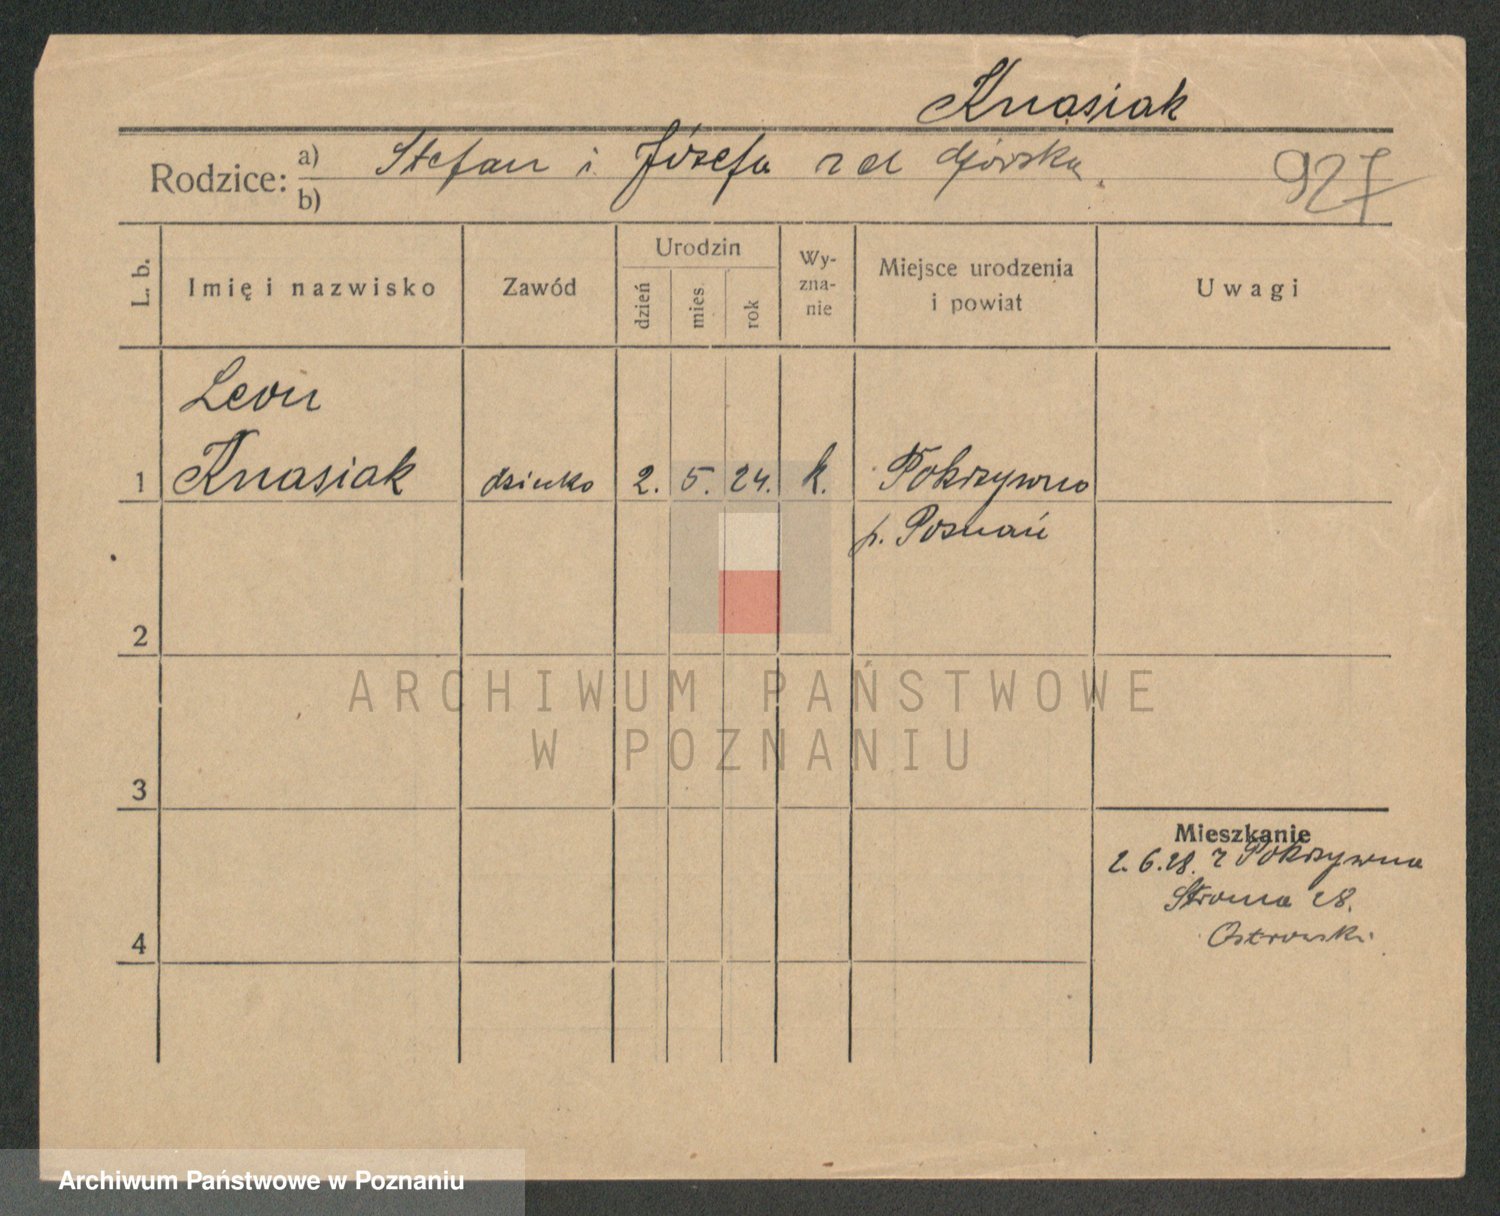 Knasiak
Rodzice: a) Stefan i Józefa z d Górska.
b)
927
L. b. Imię i nazwisko Zawód Urodzin dzień mies. rok Wy-zna-nie Miejsce urodzenia i powiat Uwagi
Leon
1 Knasiak dziecko 2. 5. 24. k. Pokrzywno
p. Poznań
2
ARCHIWUM PAŃSTWOWE
W POZNANIU
3
Mieszkanie
2.6.28. z Pokrzywna
4 Stroma 28.
Ostrowski
Archiwum Państwowe w Poznaniu